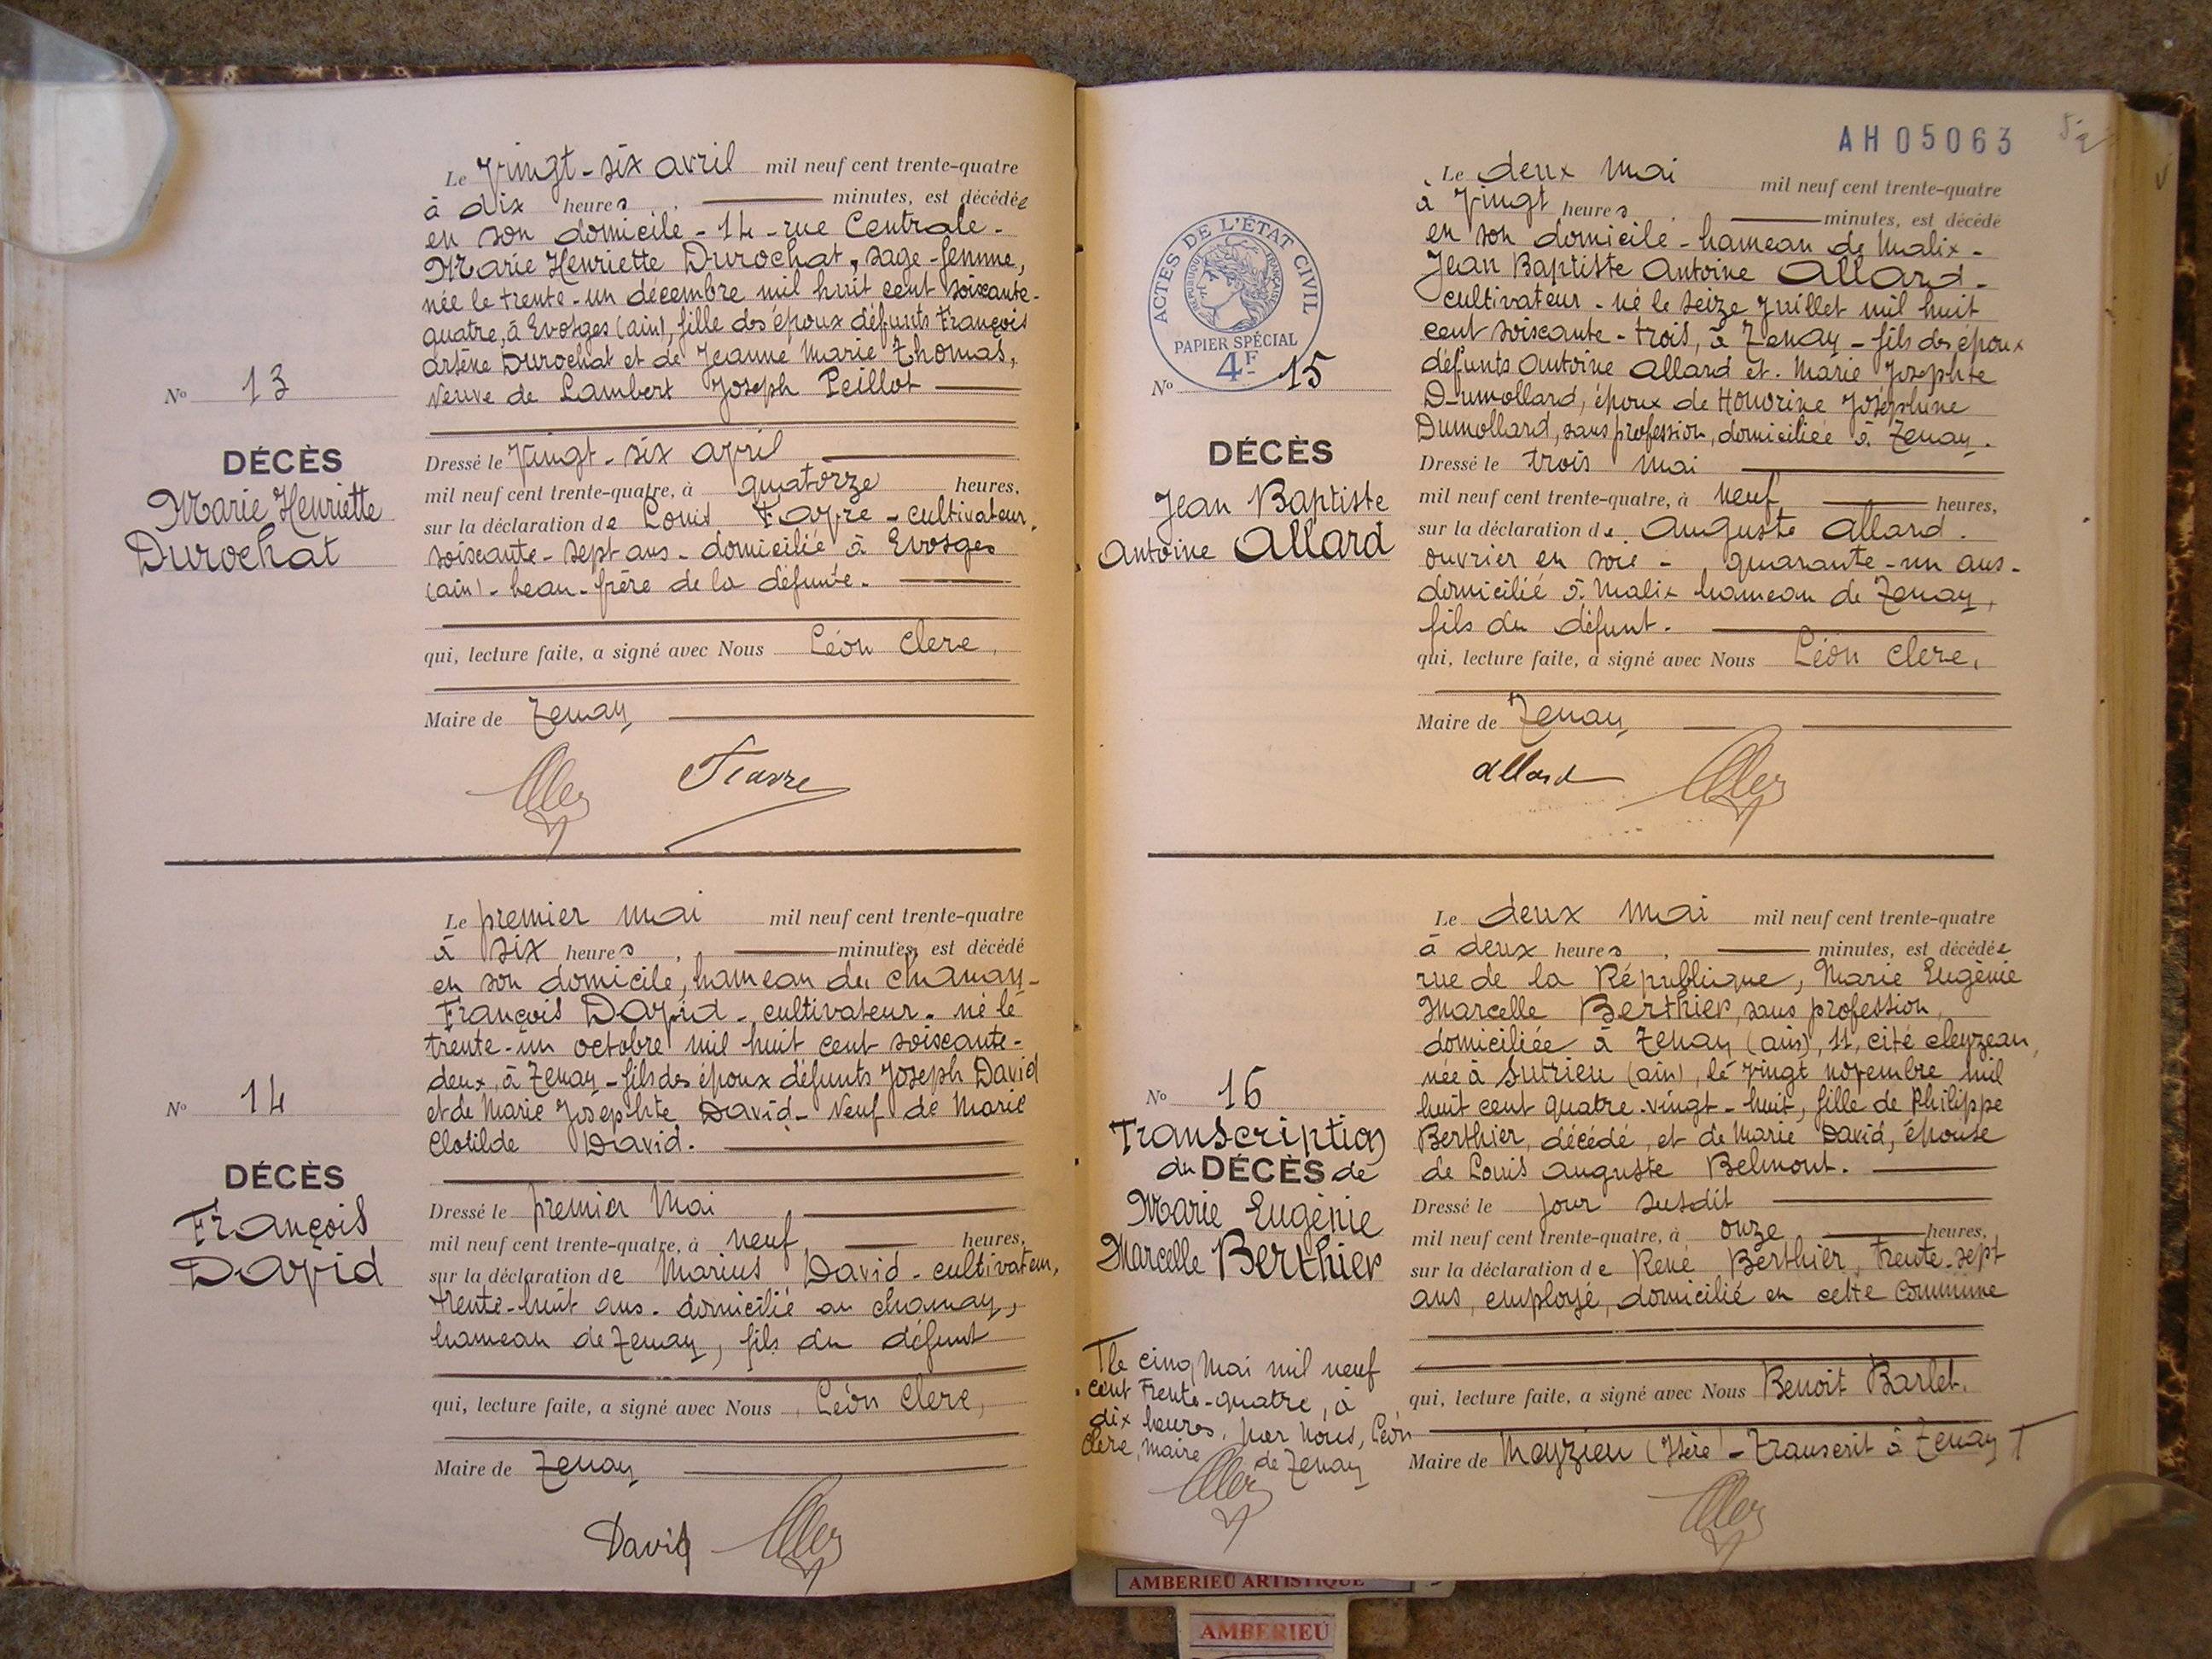 Le Vingt-six avril mil neuf cent trente-quatre
à dix heures, minutes, est décédée
en son domicile - 14 - rue Centrale -
Marie Henriette Durochat, sage-femme,
née le trente-un décembre mil huit cent soixante-
quatre, à Evosges (ain), fille des époux défunts François
artène Durochat et de Jeanne Marie Thomas,
Veuve de Lambert Joseph Peillot
No 13
DÉCÈS
Marie Henriette
Durochat
Dressé le Vingt-six avril
mil neuf cent trente-quatre, à quatorze heures,
sur la déclaration de Louis Favre - cultivateur,
soixante-sept ans - domicilié à Evosges
(ain) - beau-frère de la défunte.
qui, lecture faite, a signé avec Nous Léon Clerc,
Maire de Tenay
Favre
Le premier mai mil neuf cent trente-quatre
à six heures, minutes, est décédé
en son domicile, hameau du Chanay -
François David - cultivateur - né le
trente-un octobre mil huit cent soixante-
deux, à Tenay - fils des époux défunts Joseph David
et de Marie Josephte David - Veuf de Marie
Clotilde David.
No 14
DÉCÈS
François
David
Dressé le premier Mai
mil neuf cent trente-quatre, à neuf heures,
sur la déclaration de Marius David - cultivateur,
trente-huit ans - domicilié au Chanay,
hameau de Tenay, fils du défunt
qui, lecture faite, a signé avec Nous, Léon Clerc,
Maire de Tenay
David
AH05063
52
ACTES DE L'ÉTAT CIVIL
RÉPUBLIQUE FRANÇAISE
PAPIER SPÉCIAL
4F
Le deux Mai mil neuf cent trente-quatre
à Vingt heures, minutes, est décédé
en son domicile - hameau de Malix -
Jean Baptiste Antoine Allard -
cultivateur - né le seize Juillet mil huit
cent soixante-trois, à Tenay - fils des époux
défunts Antoine Allard et Marie Josephte
Dumollard, époux de Honorine Joséphine
Dumollard, sans profession, domiciliée à Tenay.
No 15
DÉCÈS
Jean Baptiste
Antoine Allard
Dressé le trois mai
mil neuf cent trente-quatre, à neuf heures,
sur la déclaration de Auguste Allard.
ouvrier en soie - quarante-un ans -
domicilié à Malix hameau de Tenay,
fils du défunt.
qui, lecture faite, a signé avec Nous Léon Clerc,
Maire de Tenay
allard
Le deux Mai mil neuf cent trente-quatre
à deux heures, minutes, est décédée
rue de la République, Marie Eugénie
Marcelle Berthier, sans profession,
domiciliée à Tenay (ain), 11, cité Cleyzeau,
née à Sutrieu (ain), le vingt novembre mil
huit cent quatre-vingt-huit, fille de Philippe
Berthier, décédé, et de Marie David, épouse
de Louis Auguste Belmont.
No 16
Transcription
du DÉCÈS de
Marie Eugénie
Marcelle Berthier
Dressé le jour susdit
mil neuf cent trente-quatre, à onze heures,
sur la déclaration de René Berthier, trente-sept
ans, employé, domicilié en cette commune
qui, lecture faite, a signé avec Nous Benoit Barlet.
Maire de Meyzieu (Isère) - Transcrit à Tenay T
T le cinq Mai mil neuf
cent trente-quatre, à
dix heures, par Nous, Léon
Clerc, maire de Tenay
AMBERIEU ARTISTIQUE
AMBERIEU